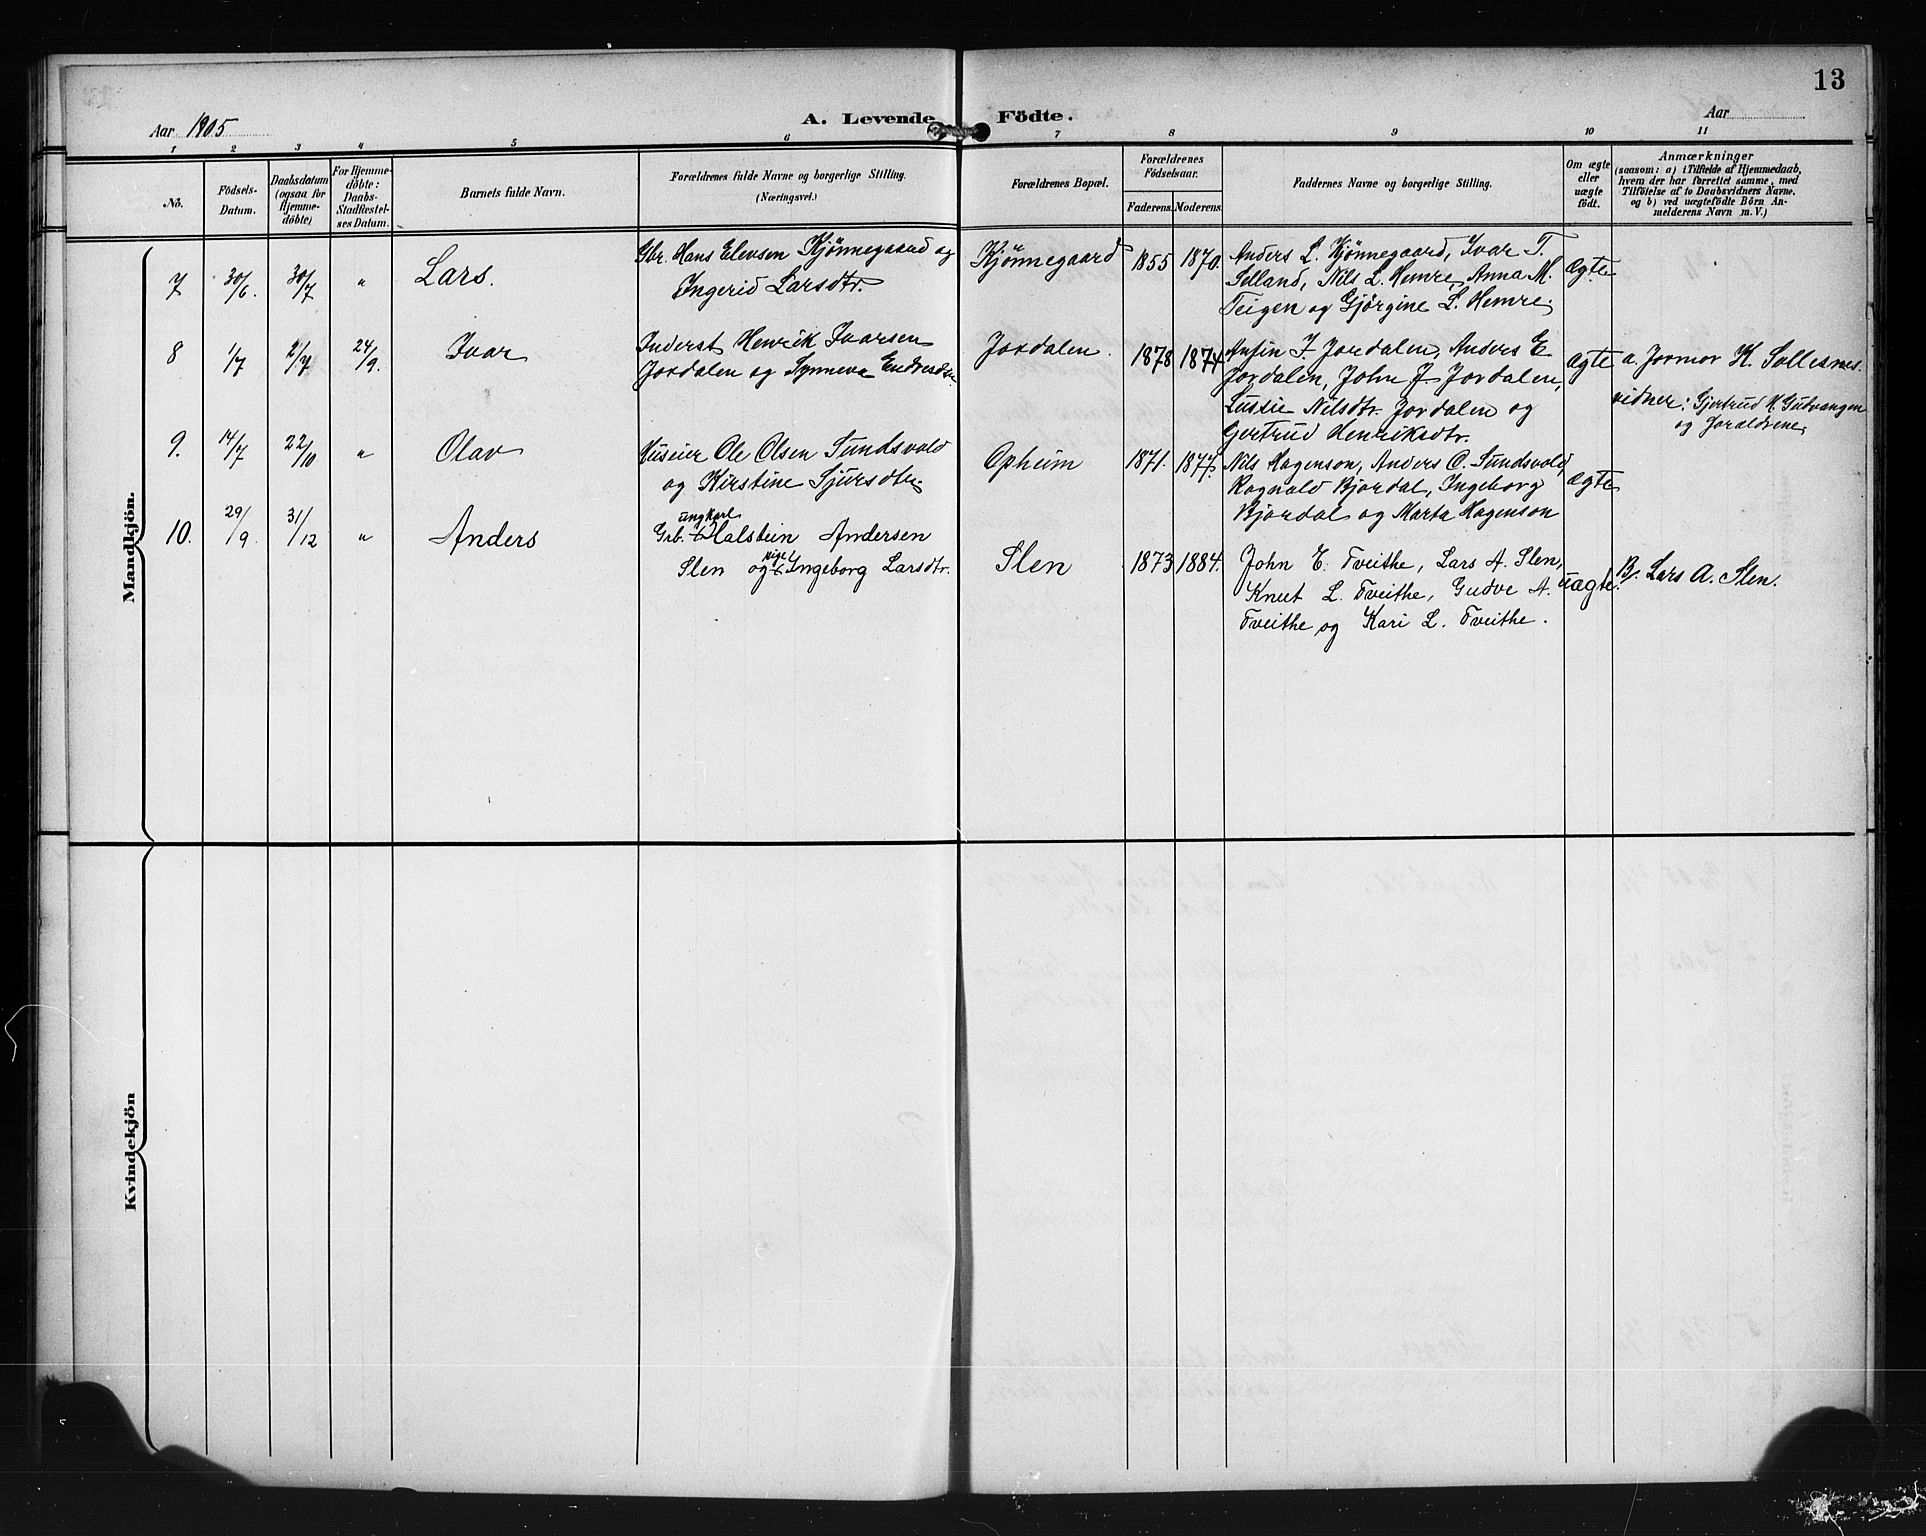 13
Aar 1905
A. Levende Födte.
Aar
1 2 3 4 5 6 7 8 9 10 11
No.
Födsels-
Datum.
Daabsdatum
(ogsaa for
Hjemme-
döbte)
For Hjemme-
döbte:
Daabs-
Stadfæstel-
ses Datum.
Barnets fulde Navn.
Forældrenes fulde Navne og borgerlige Stilling.
(Næringsvei.)
Forældrenes Bopæl.
Forældrenes
Födselsaar.
Faderens. Moderens.
Faddernes Navne og borgerlige Stilling.
Om ægte
eller
uægte
födt.
Anmærkninger
(saasom: a) i Tilfælde af Hjemmedaab,
hvem der har forrettet samme, med
Tilföielse af to Daabsvidners Navne.
og b) ved uægtefödte Börn An-
melderens Navn m. V.)
Mandkjön.
7 30/6. 30/7 " Lars.
Gbr. Hans Elevsen Kjönnegaard og
Ingerid Larsdtr.
Kjönnegaard 1855 1870.
Anders L. Kjönnegaard, Ivar T.
Selland, Nils L. Hemre, Anna M.
Teigen og Gjörgine L. Hemre.
ægte
8 1/7 2/7 24/9. Ivar
Inderst Henrik Ivarsen
Jordalen og Synneva Endresdtr.
Jordalen. 1878 1874
Anfin I. Jordalen, Anders E
Jordalen, John J. Jordalen,
Lussie Nilsdtr. Jordalen og
Gertrud Henriksdtr.
ægte
a. Jormor K. Sollesnes.
vidner: Gjertrud N. Gudvangen
og Forældrene.
9. 14/7 22/10 " Olav
Huseier Ole Olsen Sundsvold
og Kirstine Sjursdtr.
Opheim 1871. 1877.
Nils Hagenson, Anders O. Sundsvold,
Ragnald Bjørdal, Ingeborg
Bjørdal og Marta Hagenson
ægte
10. 29/9. 31/12 " Anders
ungkarl
Grb. Halstein Andersen
pige
Slen og Ingeborg Larsdtr.
Slen 1873 1884.
John E. Tveithe, Lars A. Slen,
Knut L. Tveithe, Gudve A.
Tveithe og Kari L. Tveithe.
uægte.
B/. Lars A. Slen.
Kvindekjön